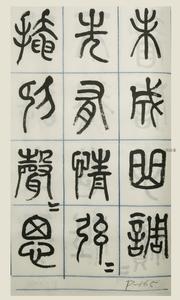 未成曲調
先有情絃〻
掩抑聲〻思
P-165